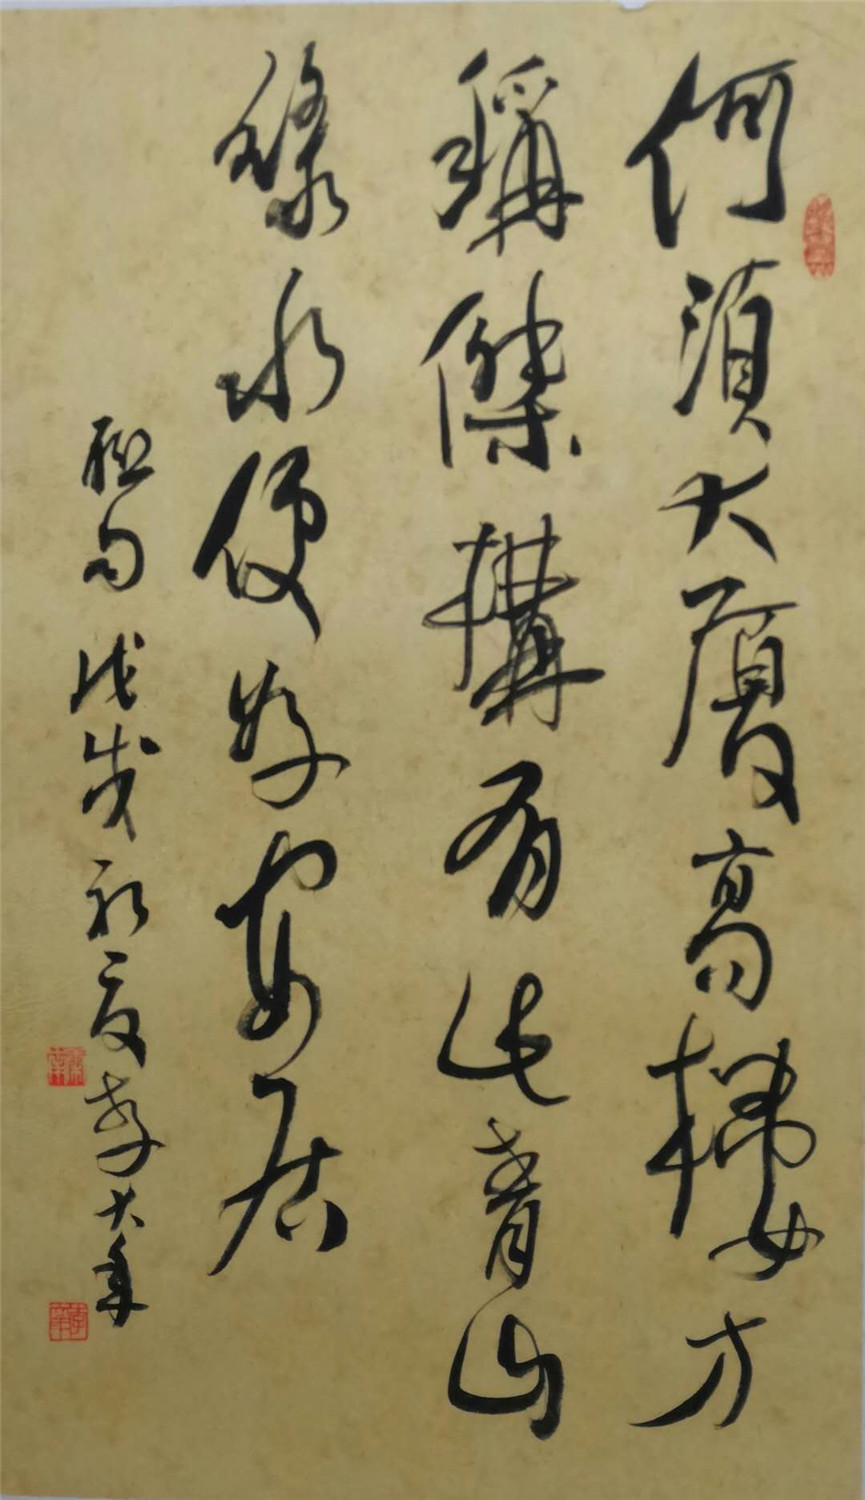 何須大廈高樓方
稱傑構有此青山
綠水便好安居
聯句戊戌初夏李大年